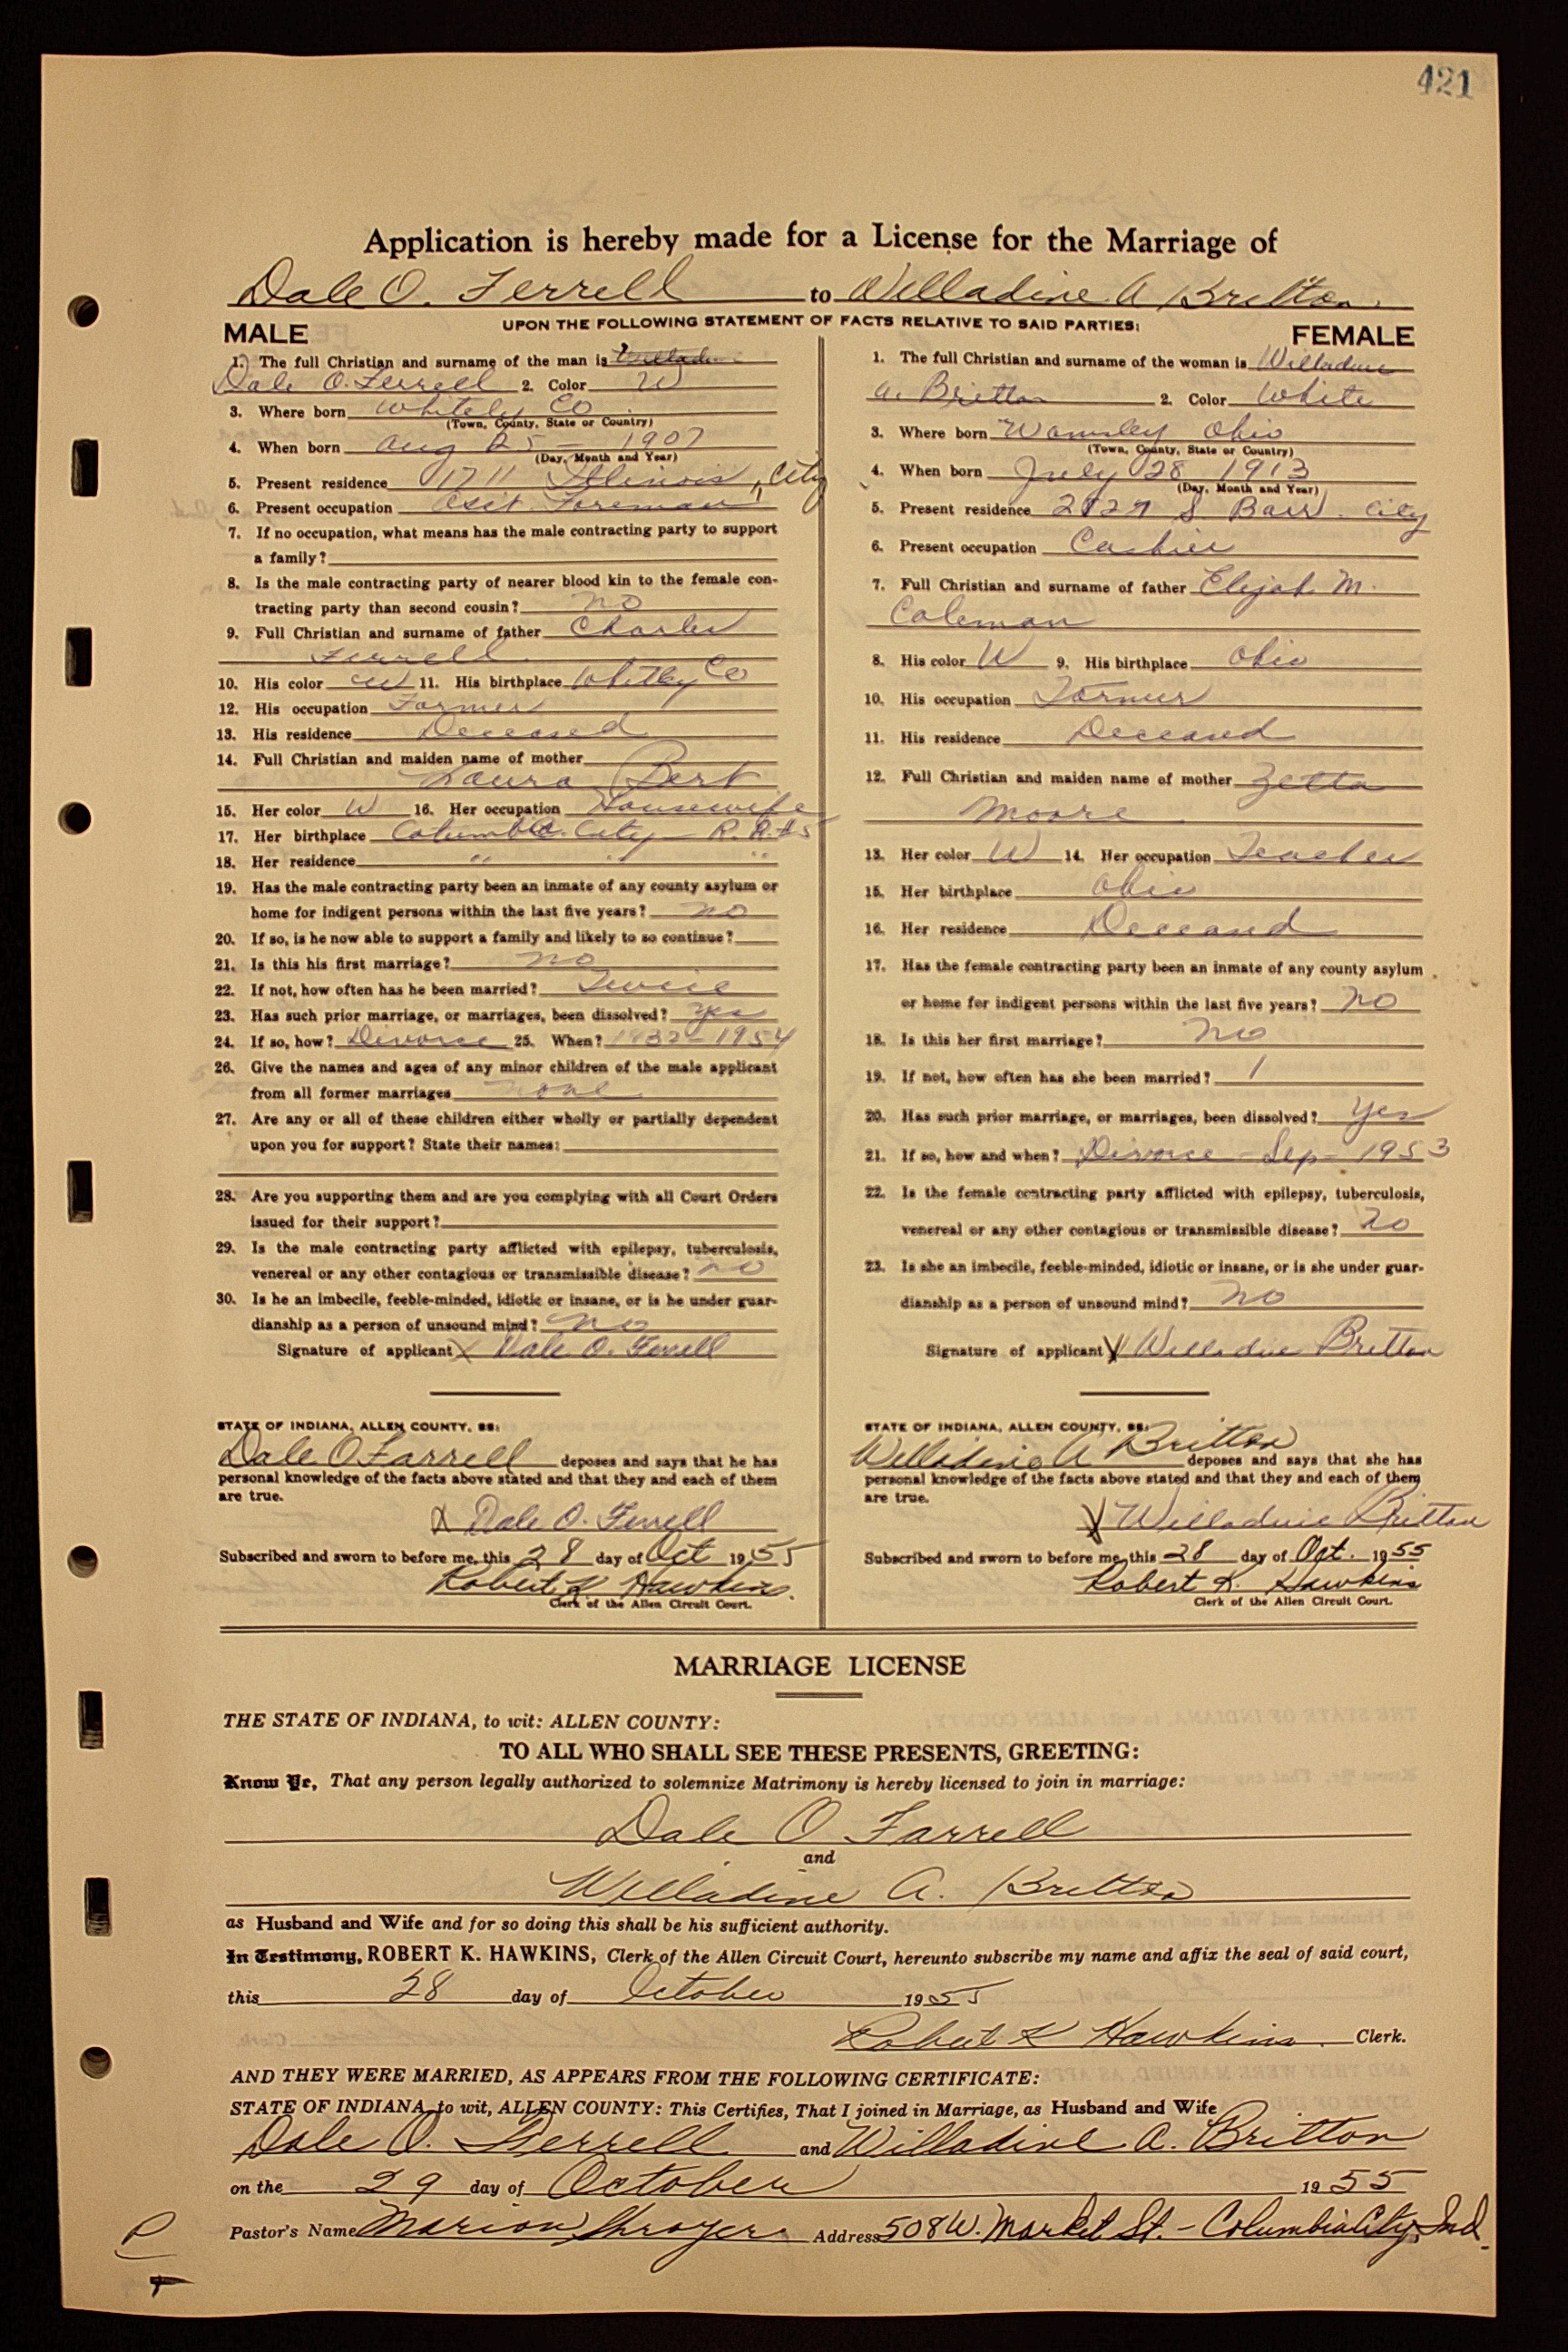 421
Application is hereby made for a License for the Marriage of
Dale O. Ferrell to Willadine A Britton
UPON THE FOLLOWING STATEMENT OF FACTS RELATIVE TO SAID PARTIES:
MALE
1. The full Christian and surname of the man is
Dale O. Ferrell 2. Color W
3. Where born Whitely Co
(Town, County, State or Country)
4. When born Aug 25 - 1907
(Day, Month and Year)
5. Present residence 1711 Illinois, City
6. Present occupation Asst. Foreman
7. If no occupation, what means has the male contracting party to support
a family?
8. Is the male contracting party of nearer blood kin to the female con-
tracting party than second cousin? no
9. Full Christian and surname of father Charles
Ferrell
10. His color W 11. His birthplace Whitley Co
12. His occupation Farmer
13. His residence Deceased
14. Full Christian and maiden name of mother
Laura Bert
15. Her color W 16. Her occupation Housewife
17. Her birthplace Columbia City - R.R. #5
18. Her residence " " "
19. Has the male contracting party been an inmate of any county asylum or
home for indigent persons within the last five years? no
20. If so, is he now able to support a family and likely to so continue?
21. Is this his first marriage? no
22. If not, how often has he been married? Twice
23. Has such prior marriage, or marriages, been dissolved? Yes
24. If so, how? Divorce 25. When? 1932 - 1954
26. Give the names and ages of any minor children of the male applicant
from all former marriages none
27. Are any or all of these children either wholly or partially dependent
upon you for support? State their names:
28. Are you supporting them and are you complying with all Court Orders
issued for their support?
29. Is the male contracting party afflicted with epilepsy, tuberculosis,
venereal or any other contagious or transmissible disease? no
30. Is he an imbecile, feeble-minded, idiotic or insane, or is he under guar-
dianship as a person of unsound mind? no
Signature of applicant X Dale O. Ferrell
STATE OF INDIANA, ALLEN COUNTY, SS:
Dale O Farrell deposes and says that he has
personal knowledge of the facts above stated and that they and each of them
are true.
X Dale O. Ferrell
Subscribed and sworn to before me, this 28 day of Oct 1955
Robert K Hawkins.
Clerk of the Allen Circuit Court.
FEMALE
1. The full Christian and surname of the woman is Willadine
A. Britton 2. Color White
3. Where born Wamsley Ohio
(Town, County, State or Country)
4. When born July 28 1913
(Day, Month and Year)
5. Present residence 2127 S Barr. City
6. Present occupation Cashier
7. Full Christian and surname of father Elijah M.
Coleman
8. His color W 9. His birthplace Ohio
10. His occupation Farmer
11. His residence Deceased
12. Full Christian and maiden name of mother Zetta
Moore
13. Her color W 14. Her occupation Teacher
15. Her birthplace Ohio
16. Her residence Deceased
17. Has the female contracting party been an inmate of any county asylum
or home for indigent persons within the last five years? no
18. Is this her first marriage? no
19. If not, how often has she been married? 1
20. Has such prior marriage, or marriages, been dissolved? Yes
21. If so, how and when? Divorce - Sep - 1953
22. Is the female contracting party afflicted with epilepsy, tuberculosis,
venereal or any other contagious or transmissible disease? no
23. Is she an imbecile, feeble-minded, idiotic or insane, or is she under guar-
dianship as a person of unsound mind? no
Signature of applicant X Willadine Britton
STATE OF INDIANA, ALLEN COUNTY, SS:
Willadine A Britton deposes and says that she has
personal knowledge of the facts above stated and that they and each of them
are true.
X Willadine Britton
Subscribed and sworn to before me, this 28 day of Oct. 1955
Robert K. Hawkins
Clerk of the Allen Circuit Court.
MARRIAGE LICENSE
THE STATE OF INDIANA, to wit: ALLEN COUNTY:
TO ALL WHO SHALL SEE THESE PRESENTS, GREETING:
Know Ye, That any person legally authorized to solemnize Matrimony is hereby licensed to join in marriage:
Dale O Farrell
and
Willadine A. Britton
as Husband and Wife and for so doing this shall be his sufficient authority.
In Testimony, ROBERT K. HAWKINS, Clerk of the Allen Circuit Court, hereunto subscribe my name and affix the seal of said court,
this 28 day of October 1955
Robert K Hawkins. Clerk.
AND THEY WERE MARRIED, AS APPEARS FROM THE FOLLOWING CERTIFICATE:
STATE OF INDIANA, to wit, ALLEN COUNTY: This Certifies, That I joined in Marriage, as Husband and Wife
Dale O. Ferrell and Willadine A. Britton
on the 29 day of October 1955
Pastor's Name Marion Shroyer Address 508 W. Market St. - Columbia City, Ind.